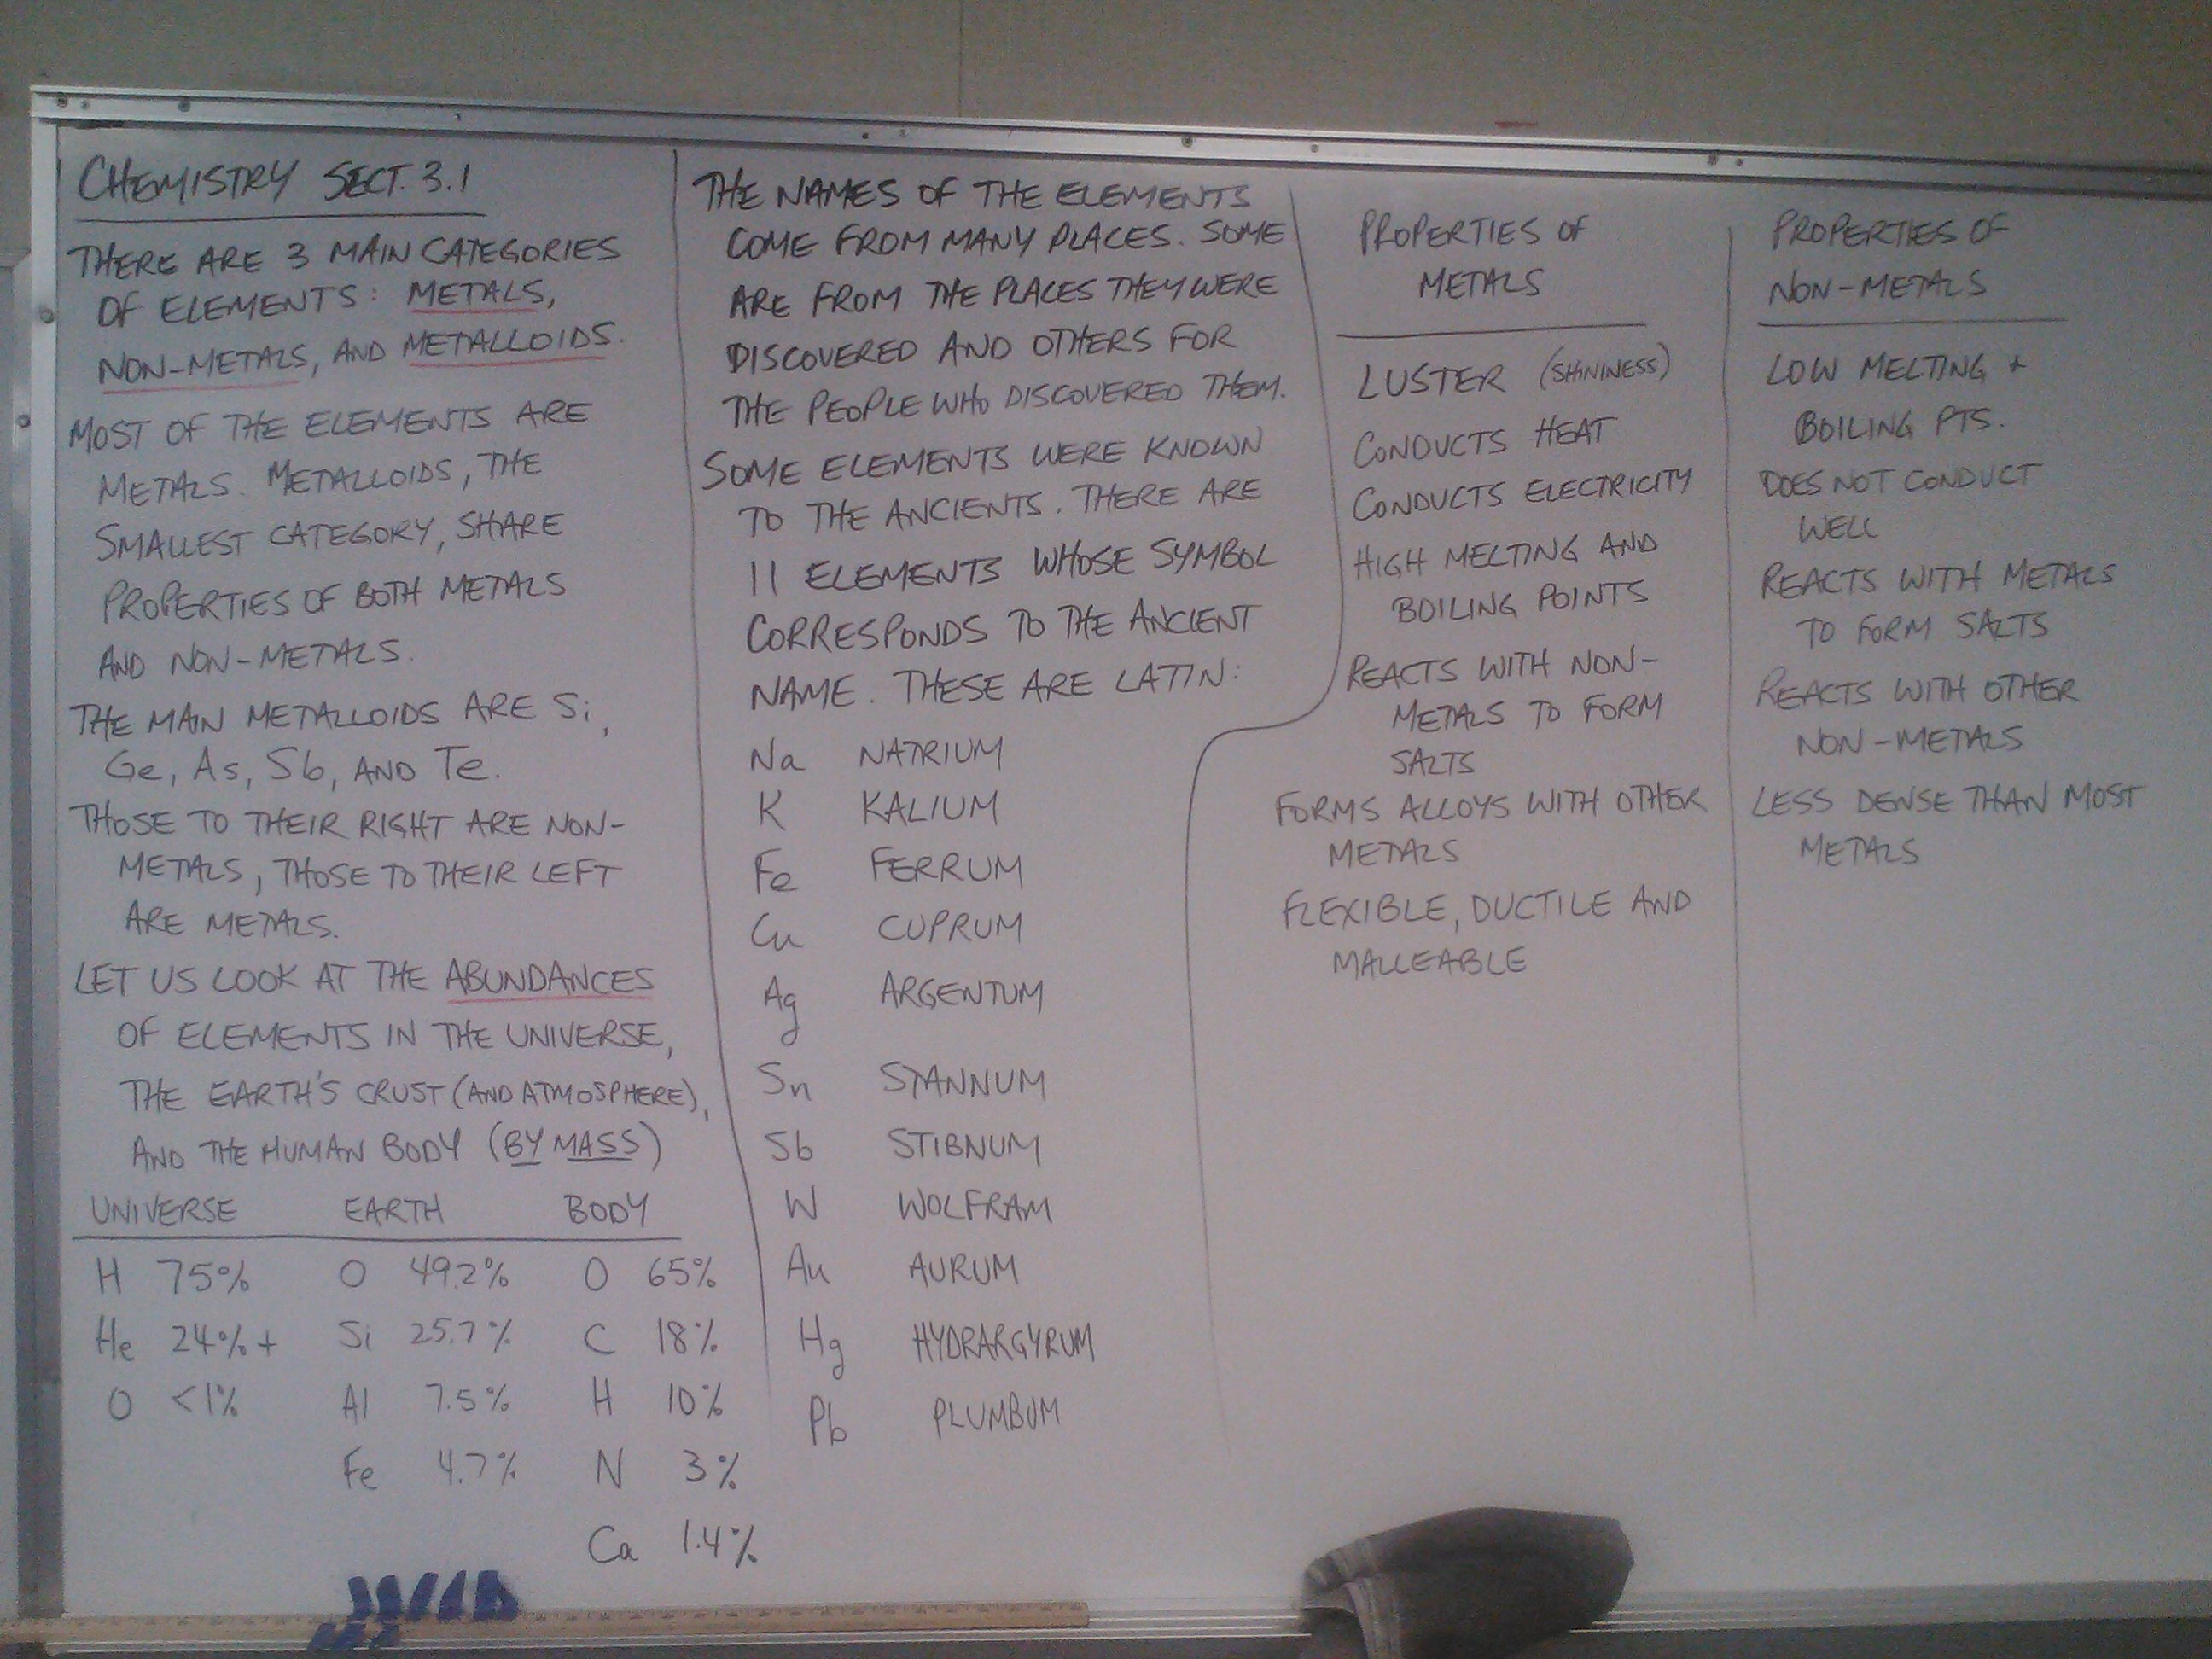 CHEMISTRY SECT. 3.1
THERE ARE 3 MAIN CATEGORIES
OF ELEMENTS: METALS,
NON-METALS, AND METALLOIDS.
MOST OF THE ELEMENTS ARE
METALS. METALLOIDS, THE
SMALLEST CATEGORY, SHARE
PROPERTIES OF BOTH METALS
AND NON-METALS.
THE MAIN METALLOIDS ARE Si,
Ge, As, Sb, AND Te.
THOSE TO THEIR RIGHT ARE NON-
METALS, THOSE TO THEIR LEFT
ARE METALS.
LET US LOOK AT THE ABUNDANCES
OF ELEMENTS IN THE UNIVERSE,
THE EARTH'S CRUST (AND ATMOSPHERE),
AND THE HUMAN BODY (BY MASS)
UNIVERSE EARTH BODY
H 75% O 49.2% O 65%
He 24%+ Si 25.7% C 18%
O <1% Al 7.5% H 10%
Fe 4.7% N 3%
Ca 1.4%
THE NAMES OF THE ELEMENTS
COME FROM MANY PLACES. SOME
ARE FROM THE PLACES THEY WERE
DISCOVERED AND OTHERS FOR
THE PEOPLE WHO DISCOVERED THEM.
SOME ELEMENTS WERE KNOWN
TO THE ANCIENTS. THERE ARE
11 ELEMENTS WHOSE SYMBOL
CORRESPONDS TO THE ANCIENT
NAME. THESE ARE LATIN:
Na NATRIUM
K KALIUM
Fe FERRUM
Cu CUPRUM
Ag ARGENTUM
Sn STANNUM
Sb STIBNUM
W WOLFRAM
Au AURUM
Hg HYDRARGYRUM
Pb PLUMBUM
PROPERTIES OF
METALS
LUSTER (SHININESS)
CONDUCTS HEAT
CONDUCTS ELECTRICITY
HIGH MELTING AND
BOILING POINTS
REACTS WITH NON-
METALS TO FORM
SALTS
FORMS ALLOYS WITH OTHER
METALS
FLEXIBLE, DUCTILE AND
MALLEABLE
PROPERTIES OF
NON-METALS
LOW MELTING +
BOILING PTS.
DOES NOT CONDUCT
WELL
REACTS WITH METALS
TO FORM SALTS
REACTS WITH OTHER
NON-METALS
LESS DENSE THAN MOST
METALS